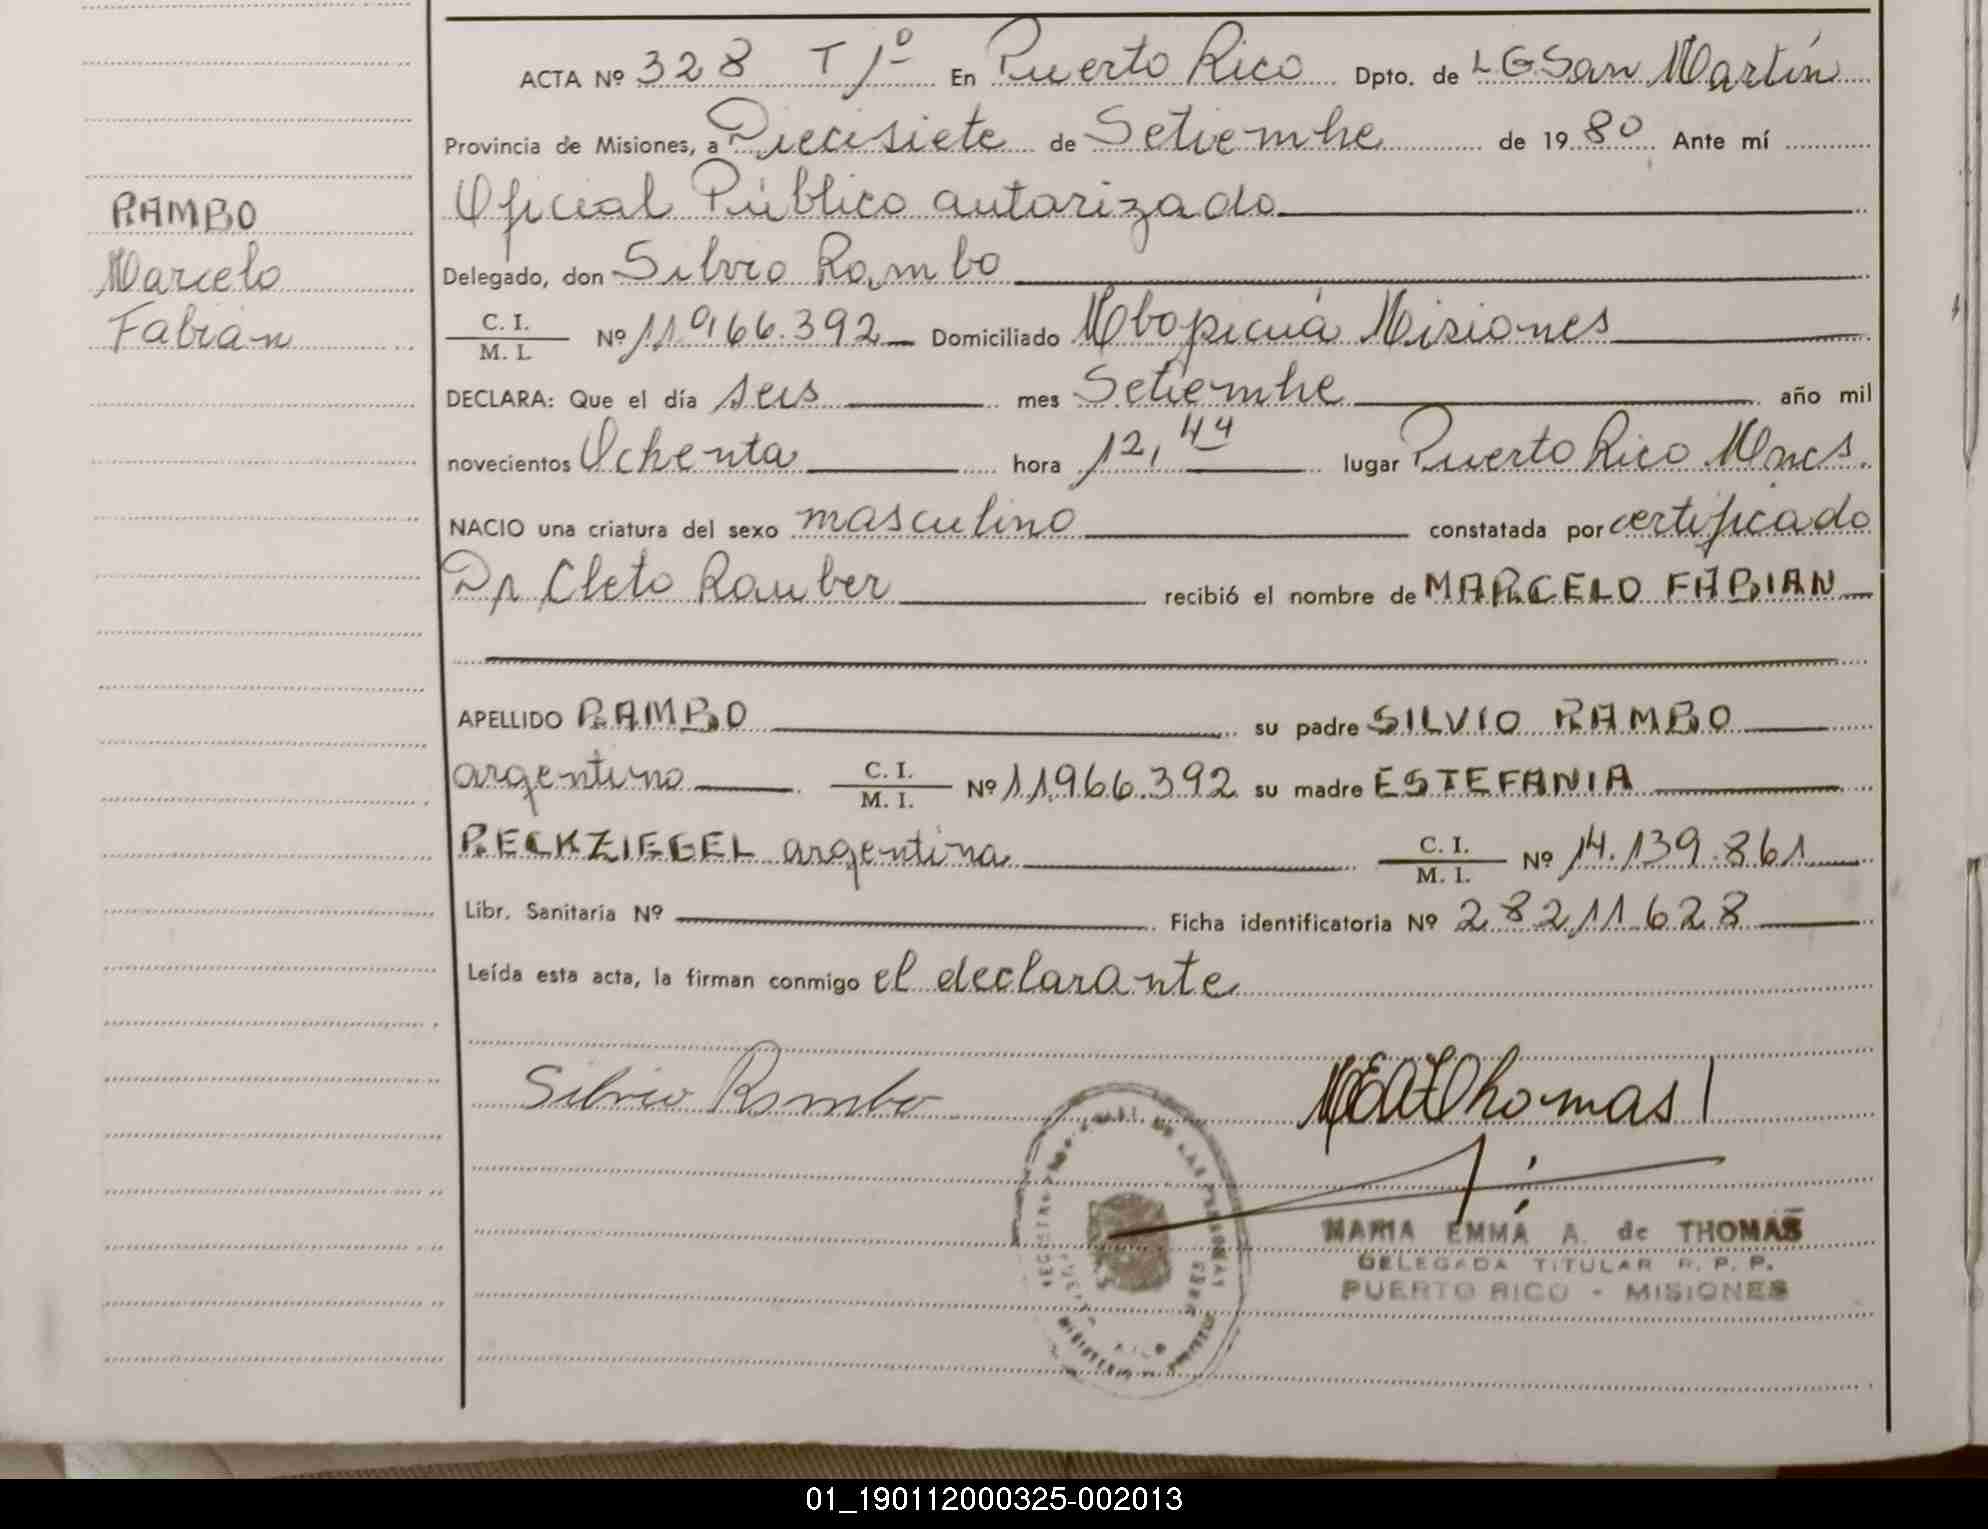 ACTA Nº 328 T 1º En Puerto Rico Dpto. de L G San Martín
Provincia de Misiones, a Diecisiete de Setiembre de 19 80 Ante mí
Oficial Público autorizado
RAMBO
Marcelo
Fabián
Delegado, don Silvio Rambo
C. I.
M. I. Nº 11.966.392 Domiciliado Mbopicuá Misiones
DECLARA: Que el día seis mes Setiembre año mil
novecientos Ochenta hora 12,44 lugar Puerto Rico Mnes.
NACIO una criatura del sexo masculino constatada por certificado
Dr Cleto Rauber recibió el nombre de MARCELO FABIAN
APELLIDO RAMBO su padre SILVIO RAMBO
argentino C. I.
M. I. Nº 11.966.392 su madre ESTEFANIA
RECKZIEGEL argentina C. I.
M. I. Nº 14.139.861
Libr. Sanitaria Nº Ficha identificatoria Nº 28211628
Leída esta acta, la firman conmigo el declarante
Silvio Rambo
MEAThomas
MARIA EMMA A. de THOMAS
DELEGADA TITULAR R. P. P.
PUERTO RICO - MISIONES
01_190112000325-002013